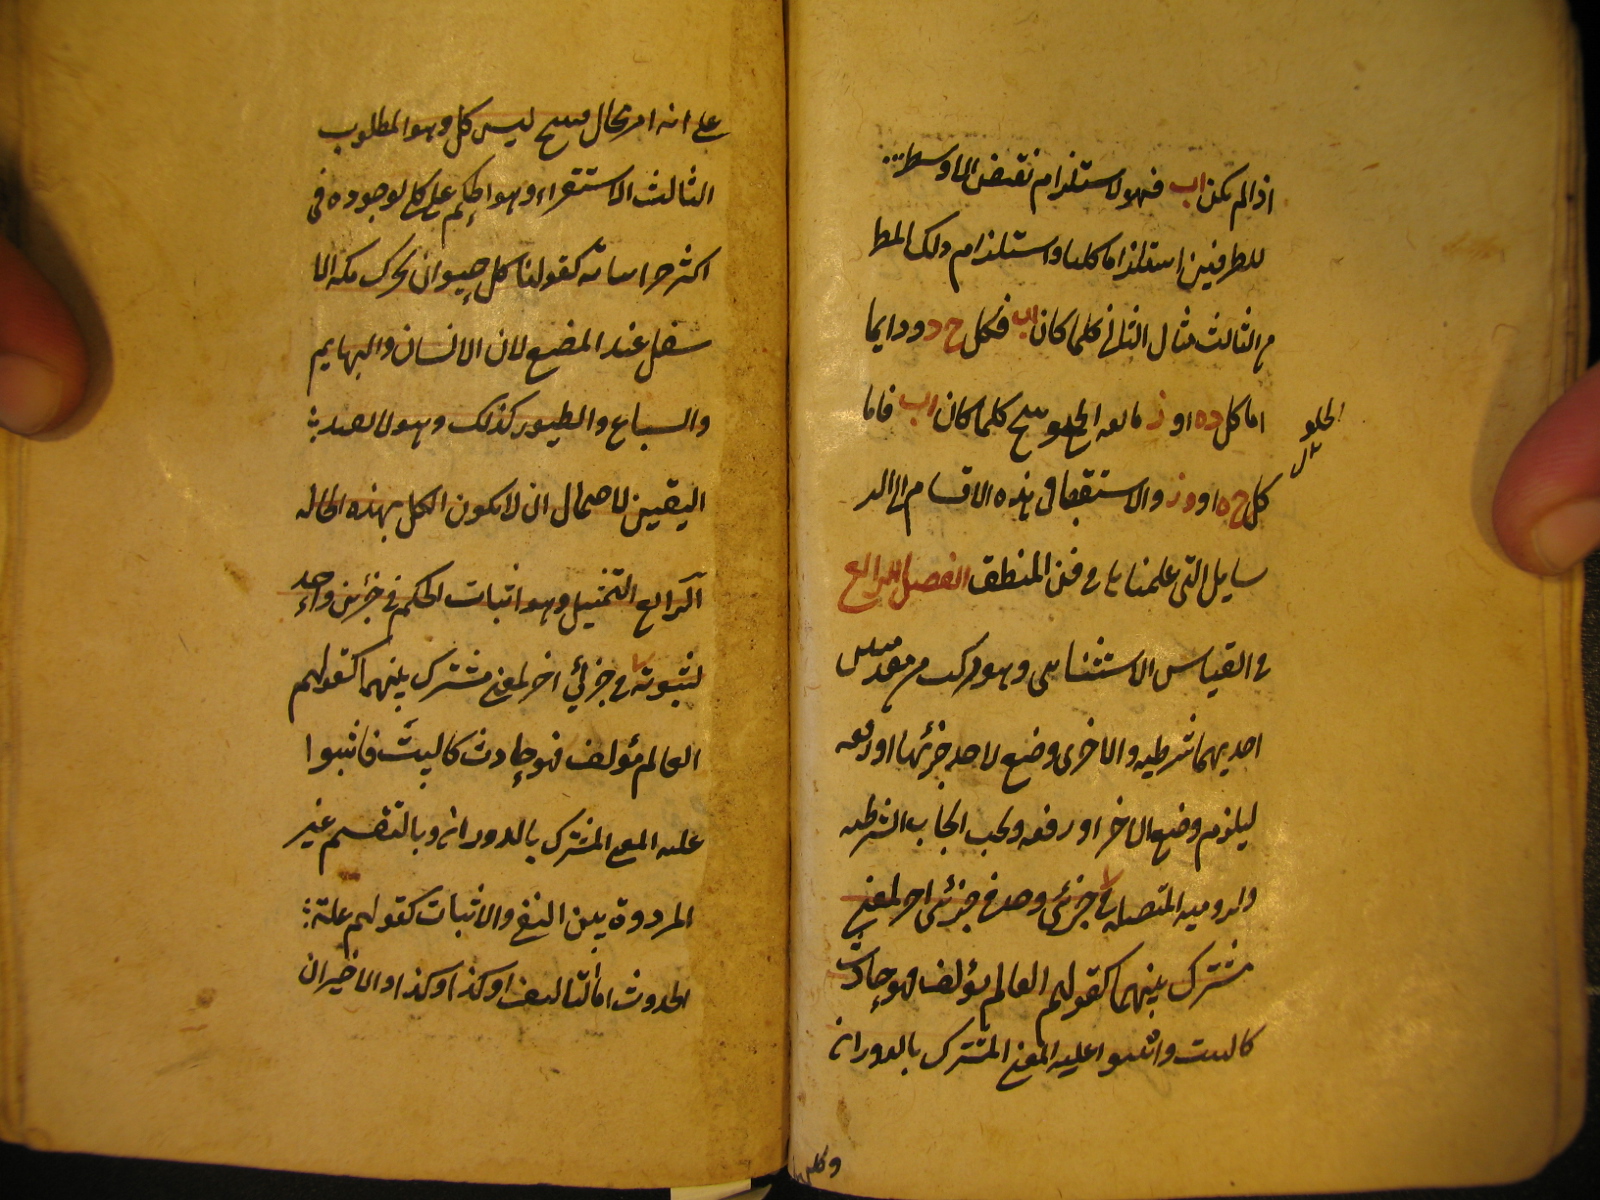 اذا لم يكن اب فهو لاستلزام نقيض الاوسط
للطرفين استلزاما كليا واستلزام ذلك المط
من الثالث مثال الثاني كلما كان اب فكل ج د ودايما
اما كل ده او ز مانعه الخلو ينتج كلما كان اب فاما
الخلو
كل ج ه او و ز والاستقصا في هذه الاقسام الى الر
سايل التي علمناها في فن المنطق الفصل الرابع
في القياس الاستثنائي وهو مركب من مقدمتين
احديهما شرطيه والاخرى وضع لاحد جزئها او رفعه
ليلزم وضع الاخر او رفعه ويجب ايجاب الشرطيه
ولزوميه المتصله في جزئي وحد في جزئي اخر لمعنى
مشترك بينهما كقولهم العالم مؤلف فهو حادث
كالبيت واثبتوا عليه المعنى المشترك بالدوران
على انه امر محال ينتج ليس كل وهو المطلوب
الثالث الاستقراء وهو الحكم على كلي لوجوده في
اكثر جزاسامه كقولنا كل حيوان يحرك فكه الا
سفل عند المضغ لان الانسان والبهايم
والسباع والطيور كذلك وهو لا يفيد
اليقين لاحتمال ان لا يكون الكل بهذه الحاله
الرابع التمثيل وهو اثبات الحكم في جزئي واحد
لثبوته في جزئي اخر لمعنى مشترك بينهما كقولهم
العالم مؤلف فهو حادث كالبيت فاثبتوا
عليه المعنى المشترك بالدوران وبالتقسيم غير
المردودة بين النفي والاثبات كقولهم علة
الحدوث اما التاليف او كذا او كذا والاخيران